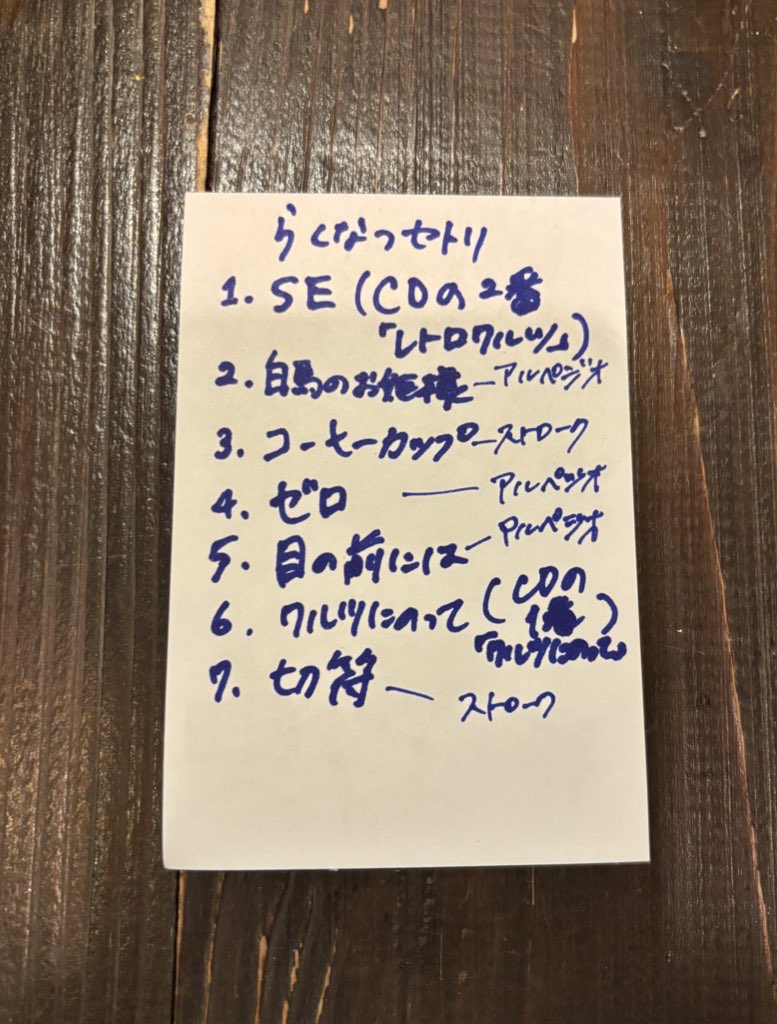 らくなつセトリ
1. SE (CDの2番
「レトロワルツ」)
2. 白馬のお姫様 — アルペジオ
3. コーヒーカップ — ストローク
4. ゼロ — アルペジオ
5. 目の前には — アルペジオ
6. ワルツにのって (CDの
1番)
「ワルツにのって」
7. 切符 — ストローク